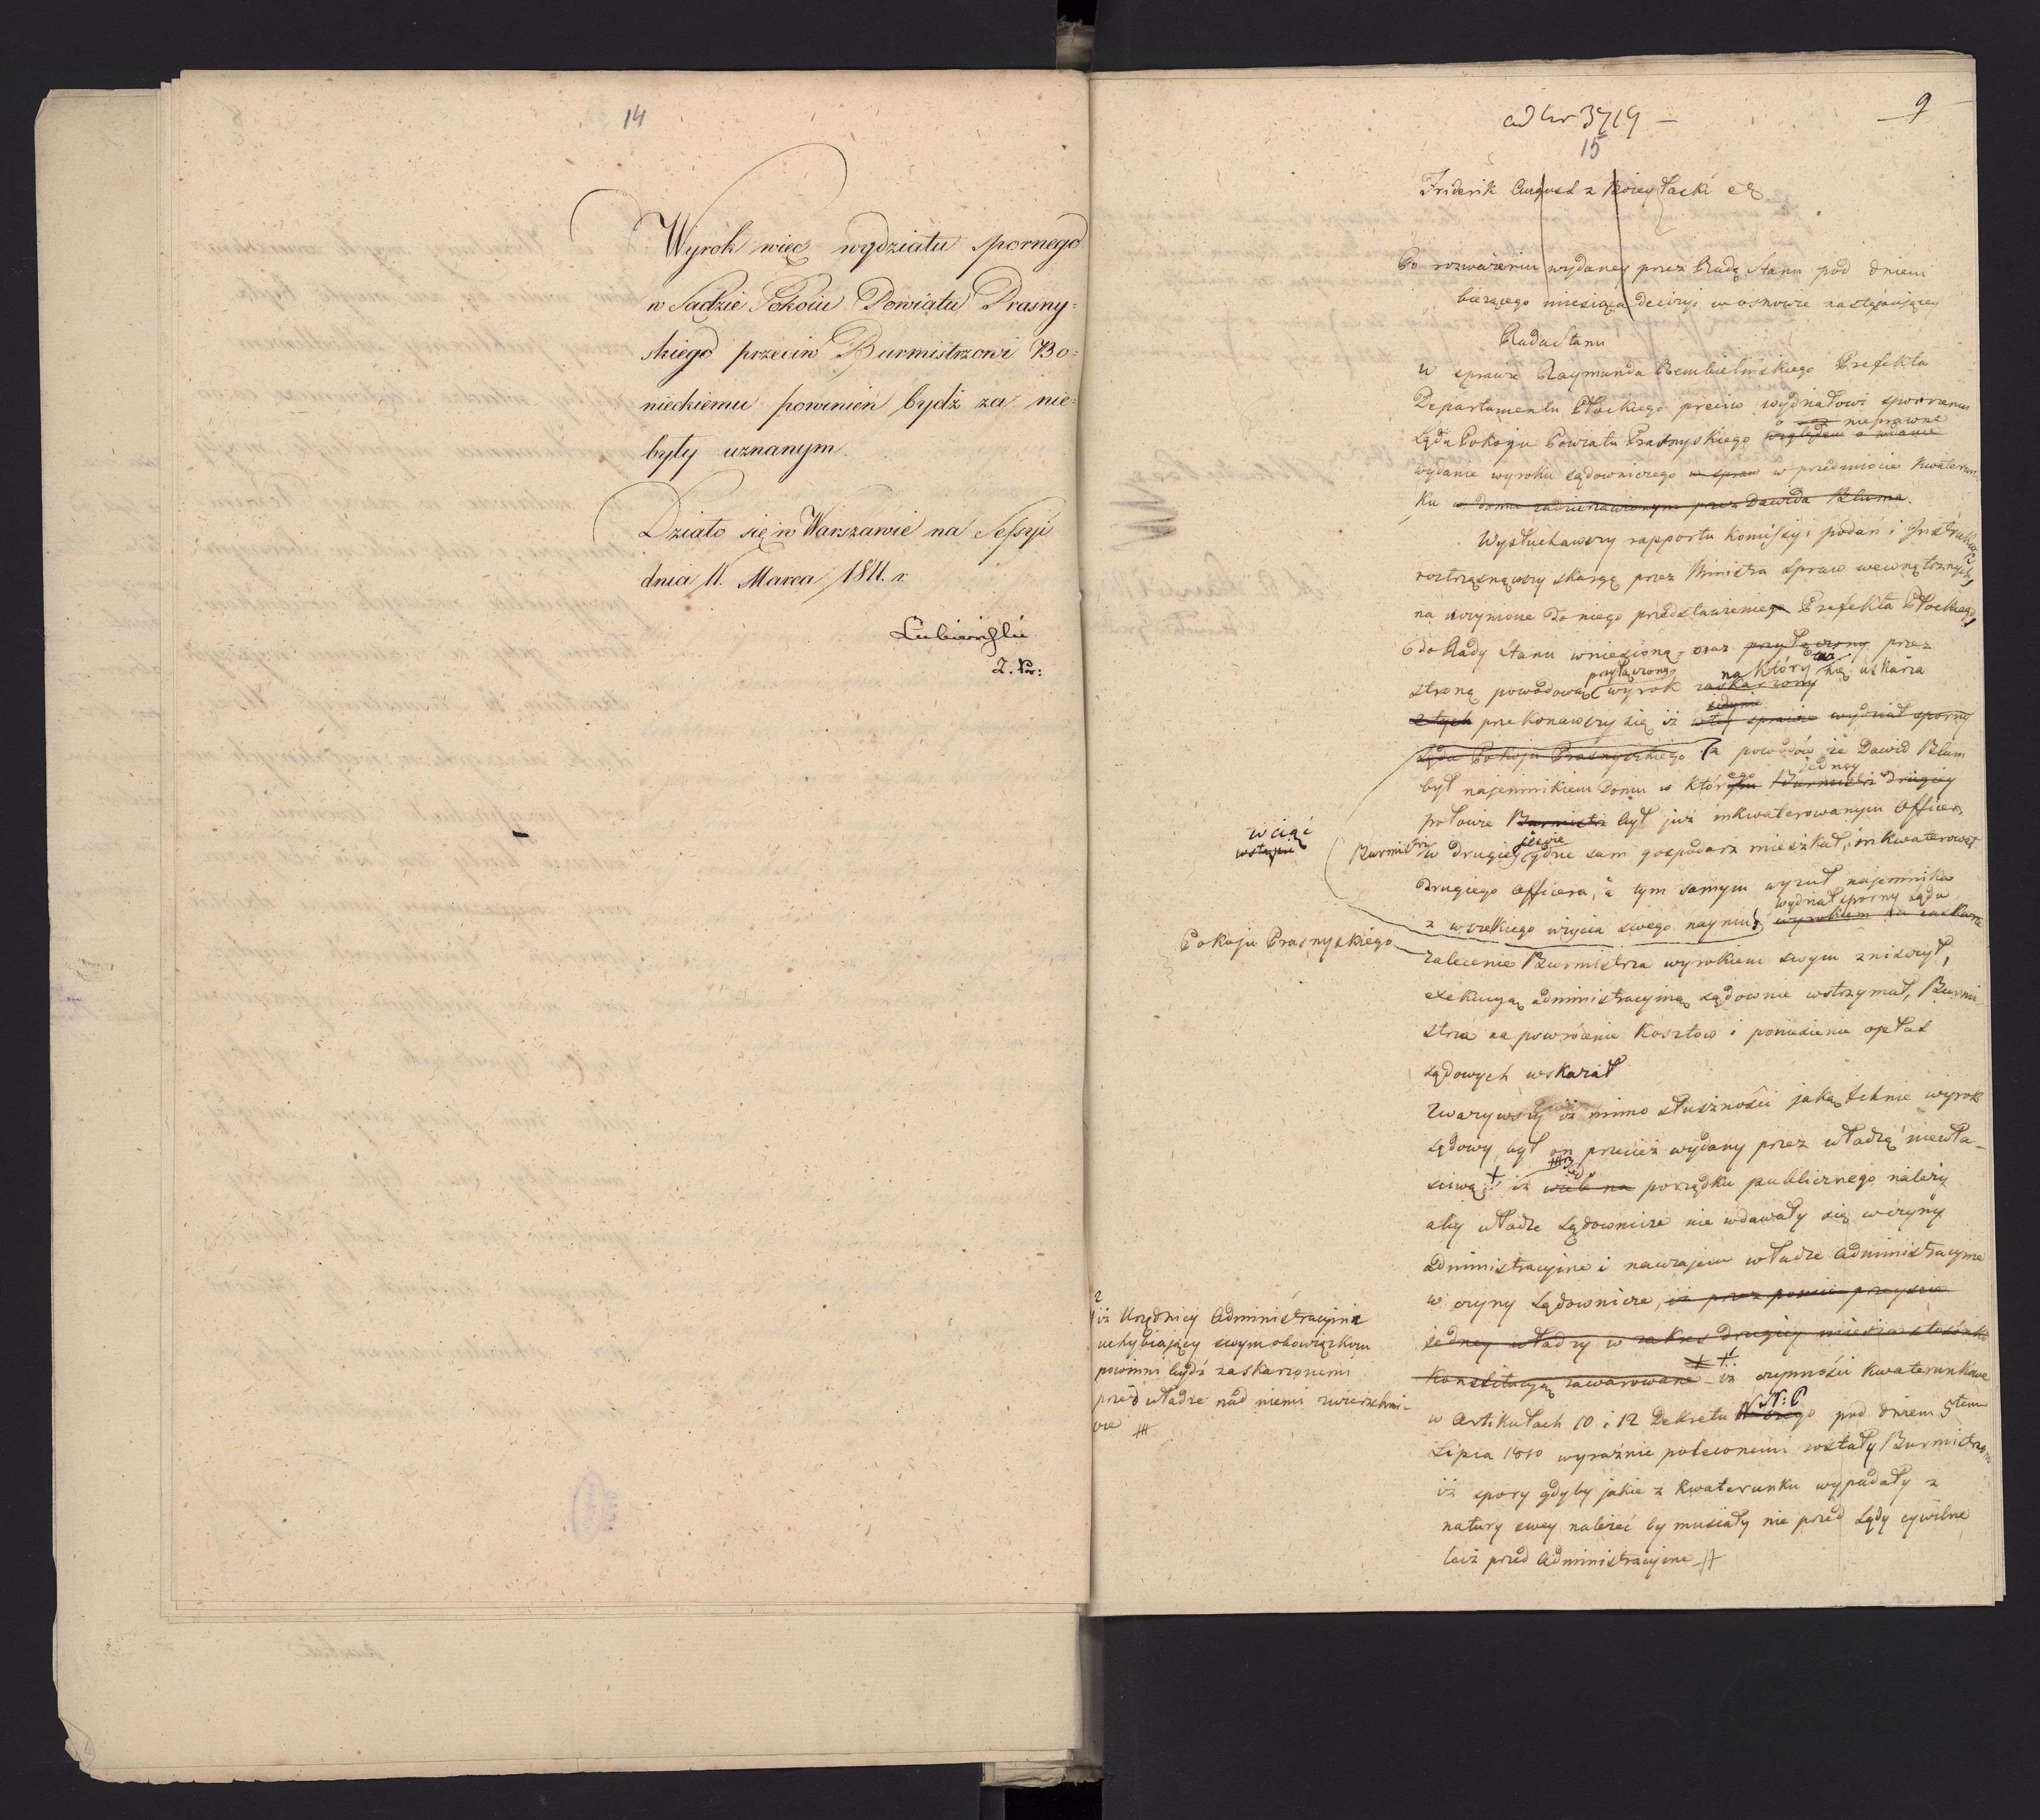 14
Wyrok więc wydziału spornego
w Sądzie Pokoiu Powiatu Prasny=
skiego przeciw Burmistrzowi Bo=
nieckiemu powinien bydź za nie=
były uznanym.
Działo się w Warszawie na Sessyi
dnia 11. Marca 1811. r.
9
ad Nr 3719 —
15
Friderik August z Bożey Łaski
Po rozważeniu wydaney przez Radę Stanu pod dniem
bieżącego miesiąca decizyi w osnowie następuiącey
Rada Stanu
W sprawie Raymunda Rembielińskiego Prefekta
Departamentu Płockiego przeciw wydziałowi spornemu
o nieprawne
Sądu Pokoju Powiatu Prasnyskiego względem
wydanie wyroku sądowniczego w spraw w przedmiocie kwaterun-
ku w domu zadzierżawionym przez Dawida Bluma.
Wysłuchawszy rapportu Komissyi podań i Instrukcyi,
roztrząsnąwszy skargę przez Ministra Spraw wewnętrznych,
na uczynione do niego przedstawienie Prefekta Płockiego,
do Rady Stanu wniesioną, oraz przyłączony przez
przyłączony na który się uskarża
stronę powodową wyrok zaskarżony
z tych przekonawszy się iż w tej sprawie wydział sporny
Sądu Pokoju Prasnyskiego z powodów że Dawid Blum
jedney
był najemnikiem domu w którego Burmistrz drugiey
połowie Burmistrz był już inkwaterowanym officer,
wciąć
wstępu
Burmistrz w drugiey gdzie sam gospodarz mieszkał, inkwaterował
drugiego officera, a tym samym wyzuł najemnika
wydział sporny Sądu
z wszelkiego użycia swego naymu, wyrokiem
Pokoju Prasnyskiego
zalecenie Burmistrza wyrokiem swym zniszczył,
exekucyą administracyiną sądownie wstrzymał, Burmi-
strza na powrócenie kosztów i poniesienie opłat
sądowych wskazał
Zważywszy iż mimo słuszności jaką tchnie wyrok
sądowy był on przecież wydany przez władzę niewła-
sciwą iż porządku publicznego należy
aby władze sądownicze nie wdawały się w czyny
administracyjne i nawzajem władze administracyjne
w czyny sądownicze, iż przez
jedney władzy w zakres drugiey
Konstitucyą zawarowane iż czynności kwaterunkowe
N: P
w Artikułach 10 i 12 Dekretu Naszego pod dniem 5tem
Lipca 1810 wyraźnie poleconemi zostały Burmistrzom
iż spory gdyby jakie z kwaterunku wypadały z
natury swey należeć by musiały nie przed Sądy cywilne
lecz przed administracyjne
iż Urzędnicy Administracyini
uchybiający swym obowiązkom
powinni bydź zaskarzonemi
przed władze nad niemi zwierzchni-
cze